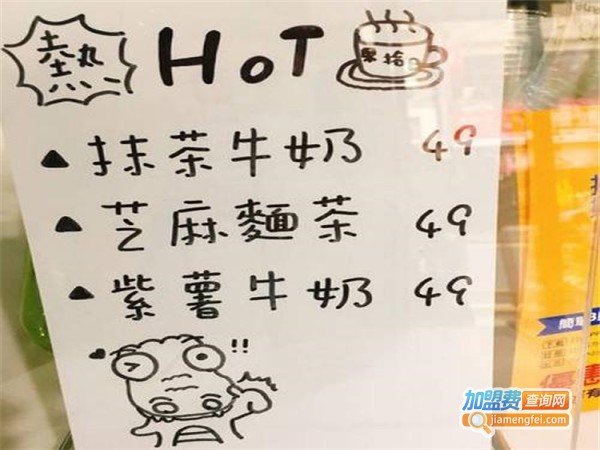 熱 HOT 果拾日
▲ 抹茶牛奶 49
▲ 芝麻麵茶 49
▲ 紫薯牛奶 49
!!
加盟费查询网
jiamengfei.com